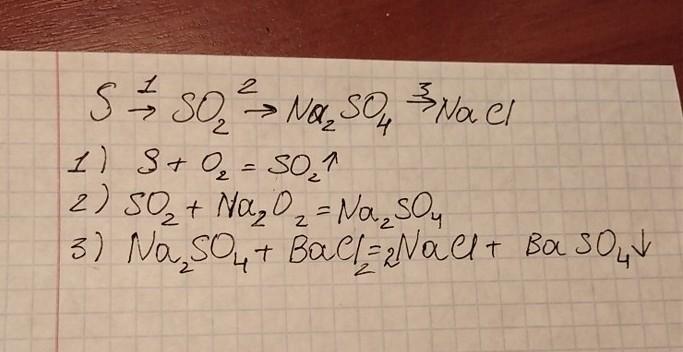 S →¹ SO₂ →² Na₂SO₄ →³ NaCl
1) S + O₂ = SO₂↑
2) SO₂ + Na₂O₂ = Na₂SO₄
3) Na₂SO₄ + BaCl₂ = 2NaCl + BaSO₄↓